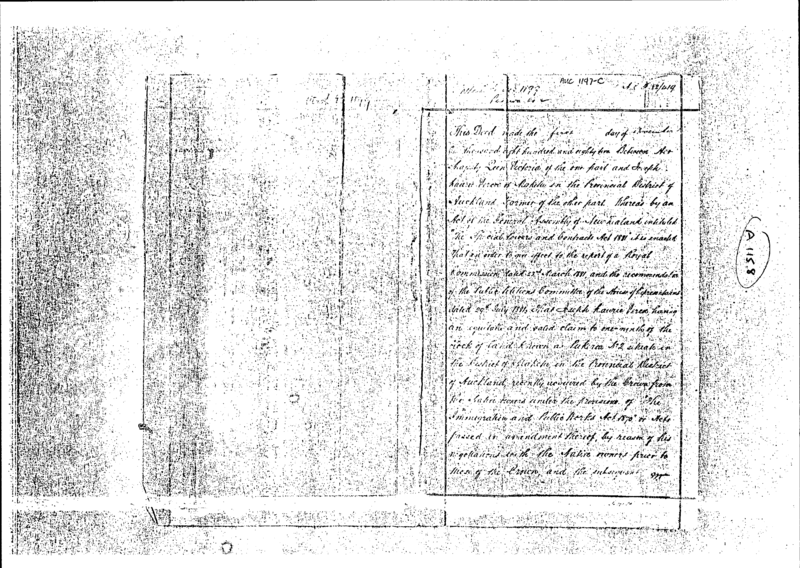 AUC 1197-C
Deed 1197
This Deed made the first day of November
in the year eight hundred and eighty two Between Her
Majesty Queen Victoria of the one part and Joseph
of Maketu in the Provincial District of
Auckland Farmer of the other part Whereas by an
Act of the General Assembly of New Zealand intituled
"The Special Powers and Contracts Act 1881" it is enacted
that in order to give effect to the report of a Royal
Commission dated 22nd March 1881, and the recommendation
of the Public Petitions Committee of the House of Representatives
dated 29th July 1881, That Joseph having
an equitable and valid claim to one-ninth of the
Block of land known as Pukeroa No 2 situate in
the District of Maketu in the Provincial District
of Auckland, recently acquired by the Crown from
the Native owners under the provisions of "The
Immigration and Public Works Act 1870" or Acts
passed in amendment thereof, by reason of his
negotiations with the Native owners prior to
those of the Crown, and the subsequent
A 1158